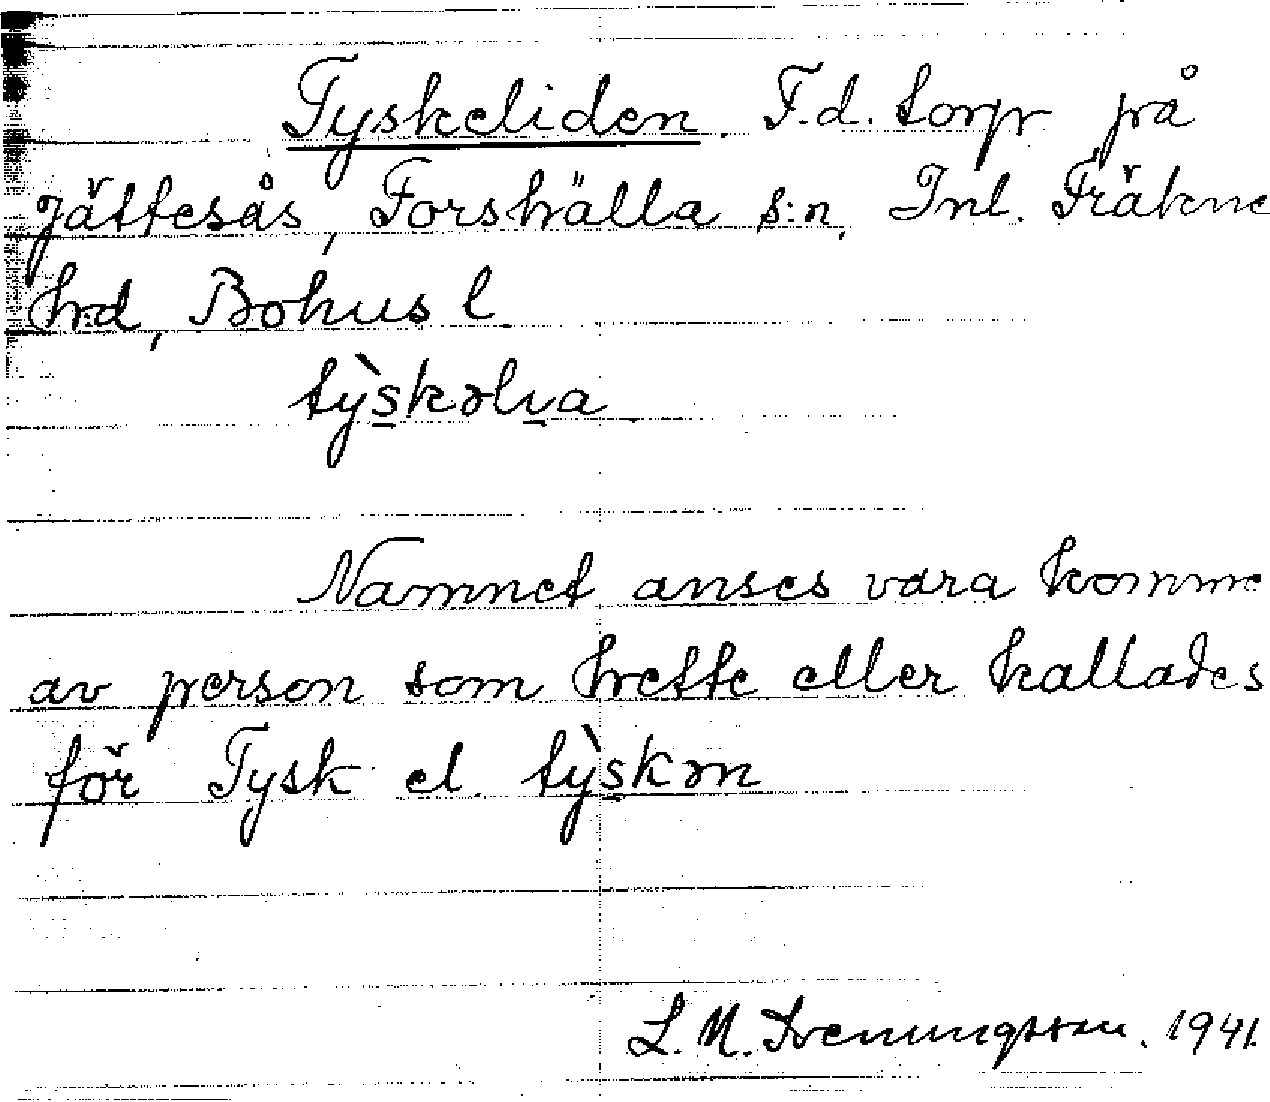 Tyskeliden. F.d. torp på
Jättesås, Forshälla s:n, Inl. Fräkne
hrd, Bohus l
tỳskəlia
Namnet anses vara komme
av person som hette eller kallades
för Tysk el. tỳskən
L. M. Svenungsson. 1941.